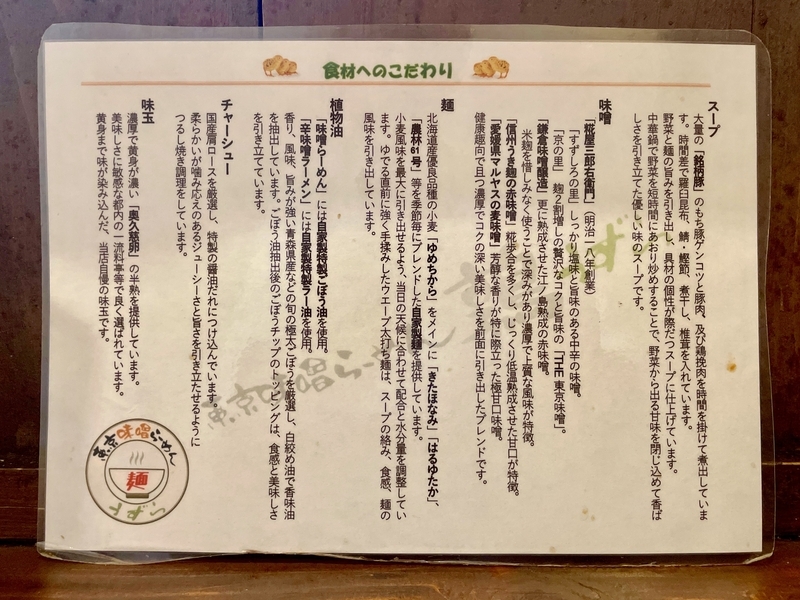 食材へのこだわり
スープ
大量の「銘柄豚」のもち豚ゲンコツと豚肉、及び鶏挽肉を時間を掛けて煮出していま
す。時間差で羅臼昆布、鯖・鰹節、煮干し、椎茸を入れています。
野菜と麺の旨みを引き出し、具材の個性が際だつスープに仕上げてます。
中華鍋で野菜を短時間にあおり炒めすることで、野菜から出る甘味を閉じ込めて香ば
しさを引き立てた優しい味のスープです。
味噌
「糀屋三郎右衛門」（明治一八年創業）
「すずしろの里」しっかり塩味と旨味のある中辛の味噌。
「京の里」麹２割増しの贅沢なコクと旨味の「江戸東京味噌」。
「鎌倉味噌醸造」更に熟成させた江ノ島熟成の赤味噌。
米麹を惜しみなく使うことで深みがあり濃厚で上質な風味が特徴。
「信州うき麹の赤味噌」糀歩合を多くし、じっくり低温熟成させた甘口が特徴。
「愛媛県マルヤスの麦味噌」芳醇な香りが特に際立った極甘口味噌。
健康趣向で且つ濃厚でコクの深い美味しさを前面に引き出したブレンドです。
麺
北海道産優良品種の小麦「ゆめちから」をメインに「きたほなみ」「はるゆたか」、
「農林61号」等を季節毎にブレンドした自家製麺を提供しています。
小麦風味を最大に引き出せるよう、当日の天候に合わせて配合と水分量を調整してい
ます。ゆでる直前に強く手揉みしたウエーブ太打ち麺は、スープの絡み、食感、麺の
風味を引き出しています。
植物油
「味噌らーめん」には自家製特製ごぼう油を使用。
「辛味噌ラーメン」には自家製特製ラー油を使用。
香り、風味、旨みが強い青森県産などの旬の極太ごぼうを厳選し、白絞め油で香味油
を抽出しています。ごぼう油抽出後のごぼうチップのトッピングは、食感と美味しさ
を引き立てています。
チャーシュー
国産肩ロースを厳選し、特製の醤油だれにつけ込んでいます。
柔らかいが噛み応えのあるジューシーさと旨さを引き立たせるように
つるし焼き調理をしています。
味玉
濃厚で黄身が濃い「奥久慈卵」の半熟を提供しています。
美味しさに敏感な都内の一流料亭等で良く選ばれています。
黄身まで味が染み込んだ、当店自慢の味玉です。
東京味噌らーめん
麺